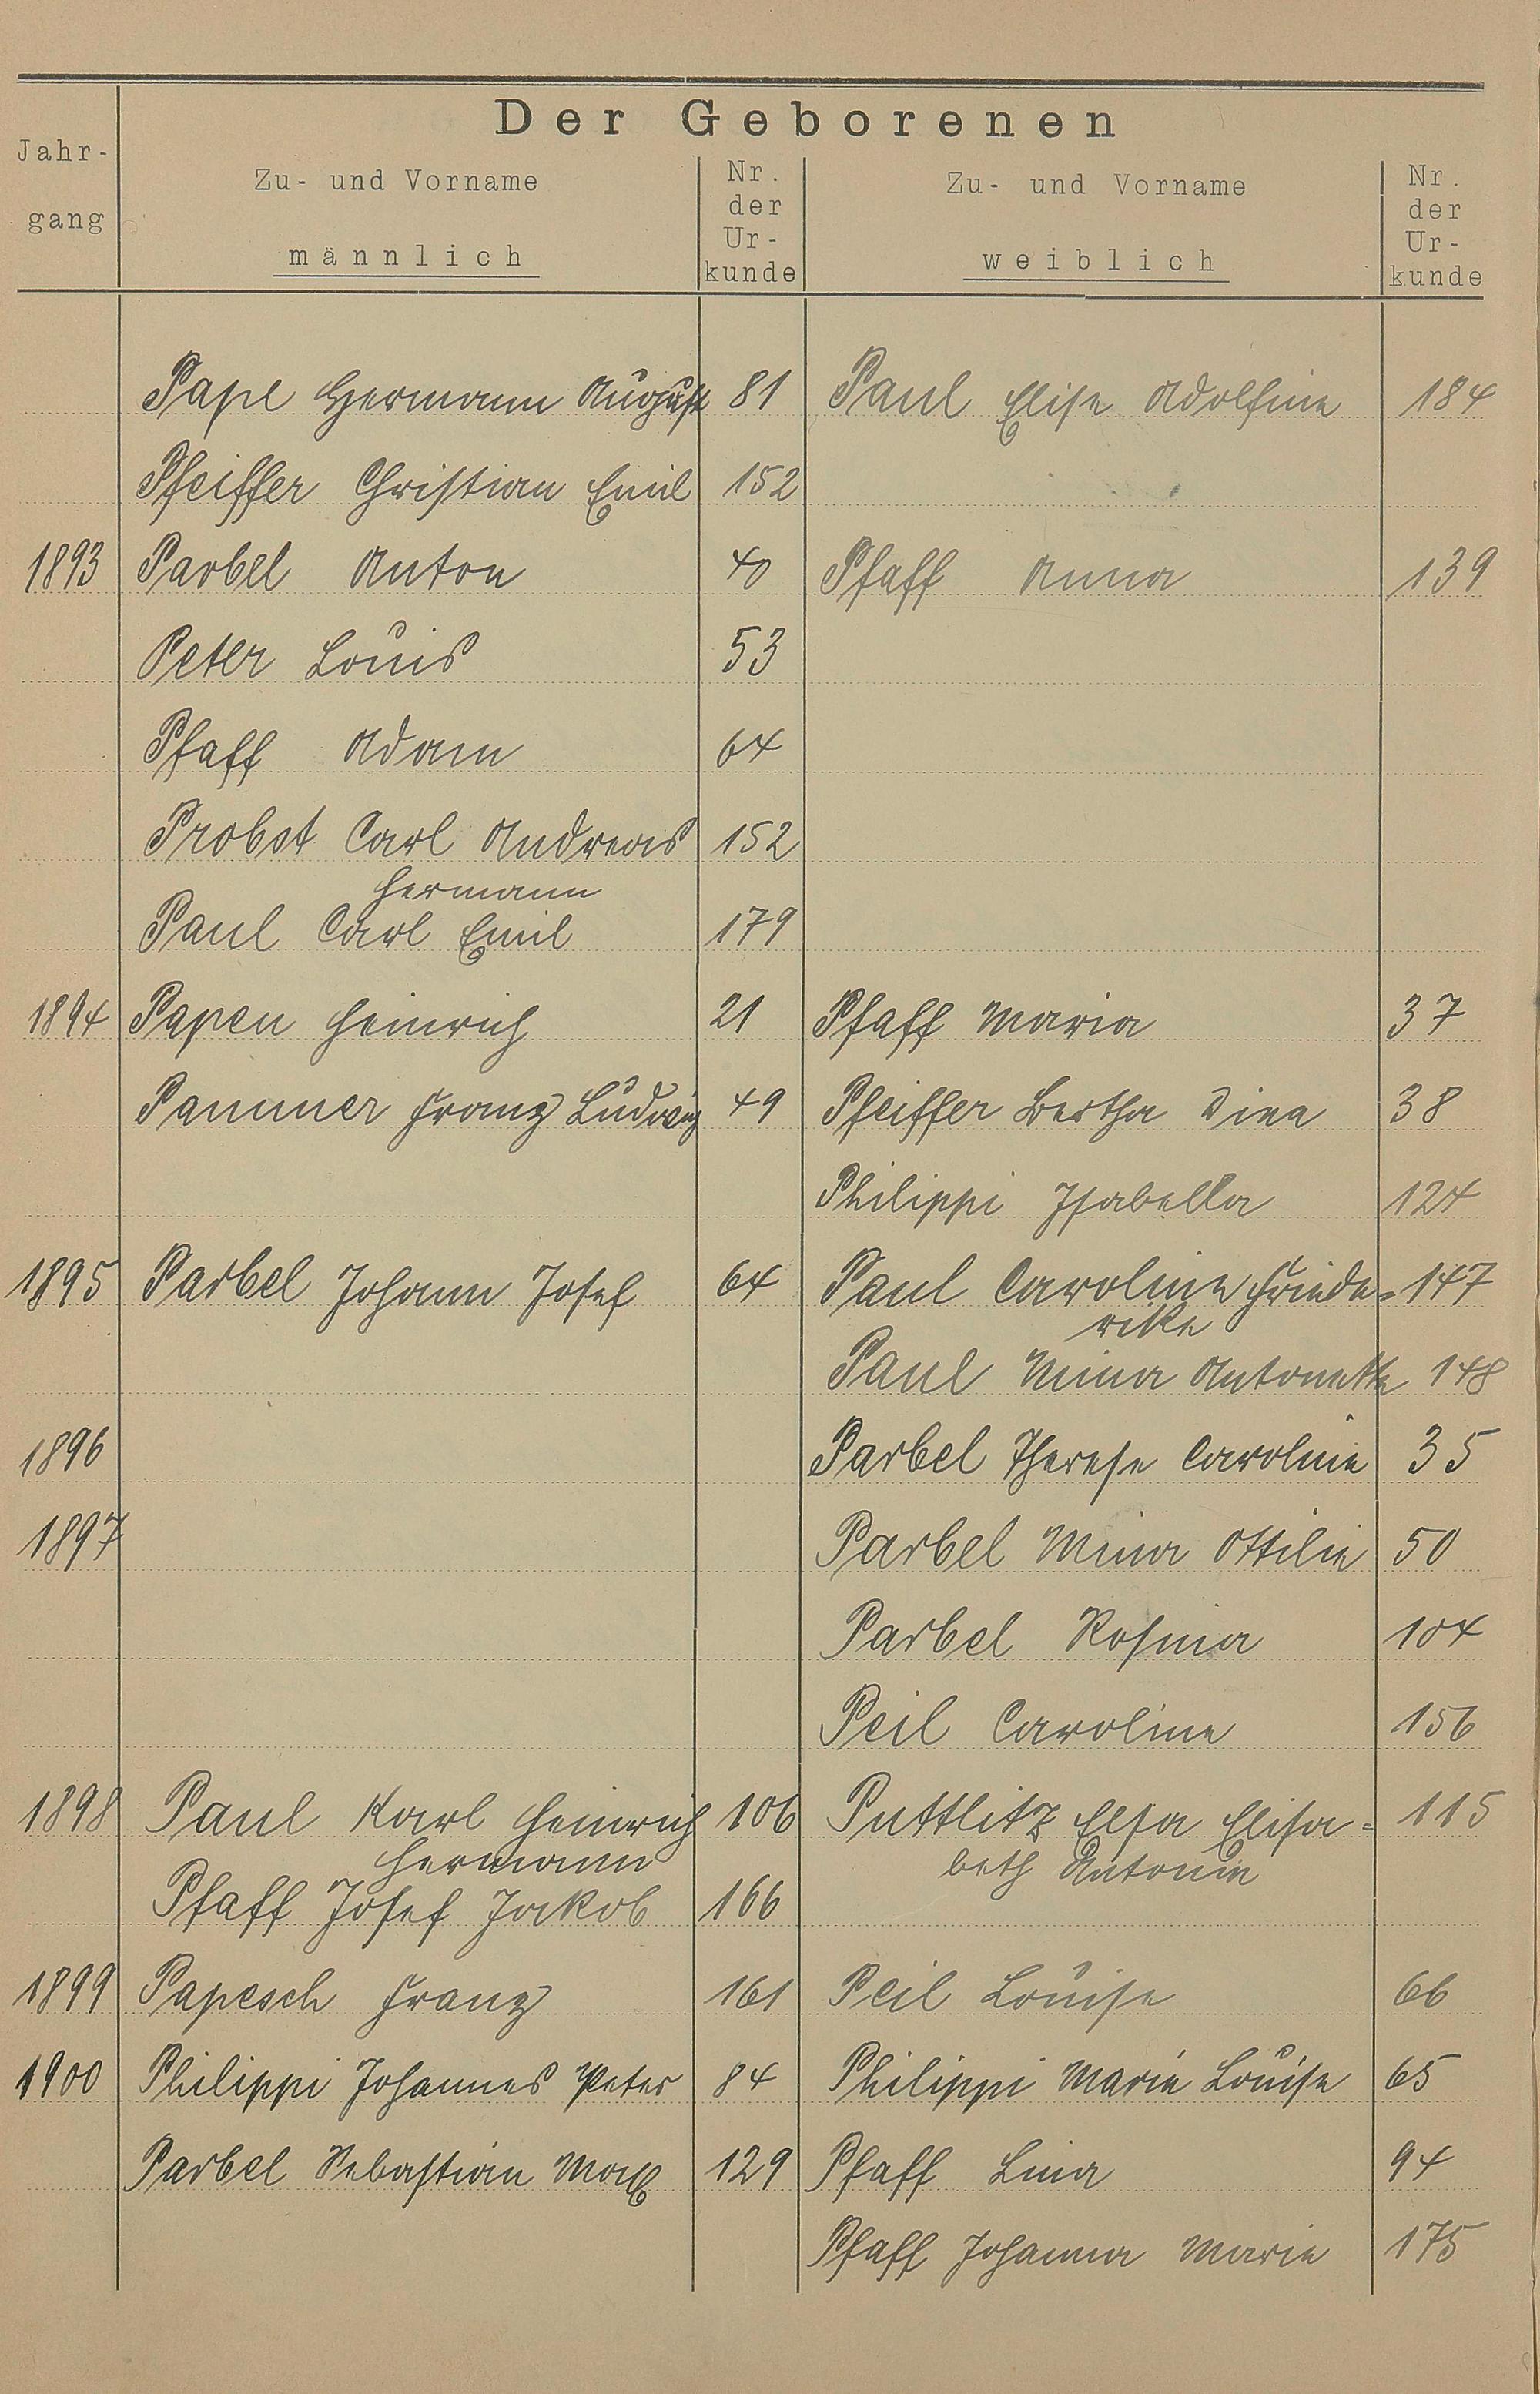 Der Geborenen
Jahr-
gang
Zu- und Vorname
männlich
Nr.
der
Ur-
kunde
Zu- und Vorname
weiblich
Nr.
der
Ur-
kunde
Pape Hermann August 81 Paul Elise Adolfine 184
Pfeiffer Christian Emil 152
1893 Parbel Anton 40 Pfaff Anna 139
Peter Louis 53
Pfaff Adam 64
Probst Carl Andreas 152
Hermann
Paul Carl Emil 179
1894 Papen Heinrich 21 Pfaff Maria 37
Pammer Franz Ludwig 49 Pfeiffer Bertha Dina 38
Philippi Isabella 124
1895 Parbel Johann Josef 64 Paul Caroline Friede= 147
rike
Paul Mina Antonette 148
1896 Parbel Therese Caroline 35
1897 Parbel Mina Ottilie 50
Parbel Rosina 104
Peil Caroline 156
1898 Paul Karl Heinrich 106 Puttlitz Elsa Elisa= 115
Hermann beth Antonie
Pfaff Josef Jakob 166
1899 Papesch Franz 161 Peil Louise 66
1900 Philippi Johannes Peter 84 Philippi Marie Louise 65
Parbel Sebastian Max 129 Pfaff Lina 94
Pfaff Johanna Marie 175